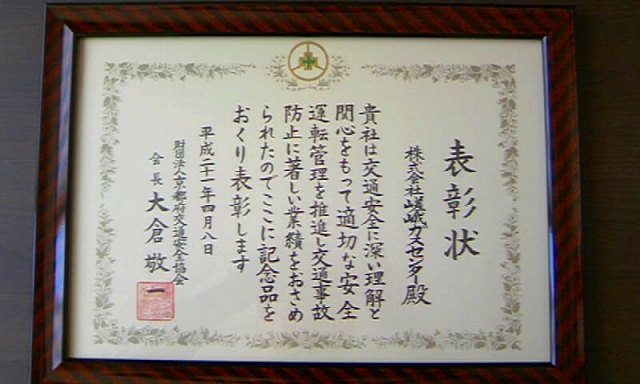 表彰状
株式会社嵯峨ガスセンター殿
貴社は交通安全に深い理解と
関心をもって適切な安全
運転管理を推進し交通事故
防止に著しい業績をおさめ
られたのでここに記念品を
おくり表彰します
平成二十一年四月八日
財団法人京都府交通安全協会
会長 大倉敬一